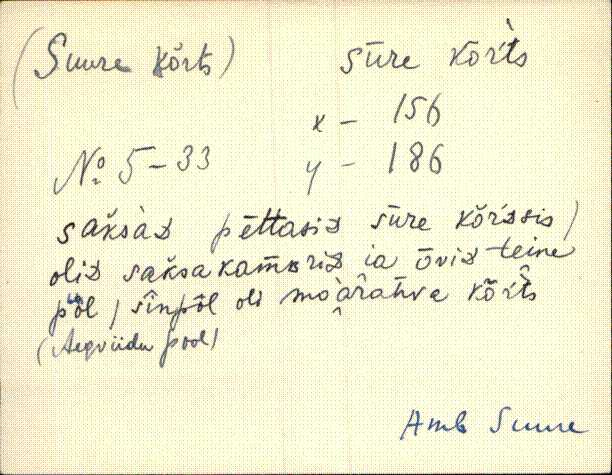 (Suure kõrts) sūre kõr̀ts
x - 156
№ 5-33 y - 186
saksàd pēttasid sūre kõr̀dsis /
olid saksakam̄brid ia ōvid teine
pùol / sînpôl oli moàrahva kõr̂ts
(Aegviidu pool)
Amb Suure